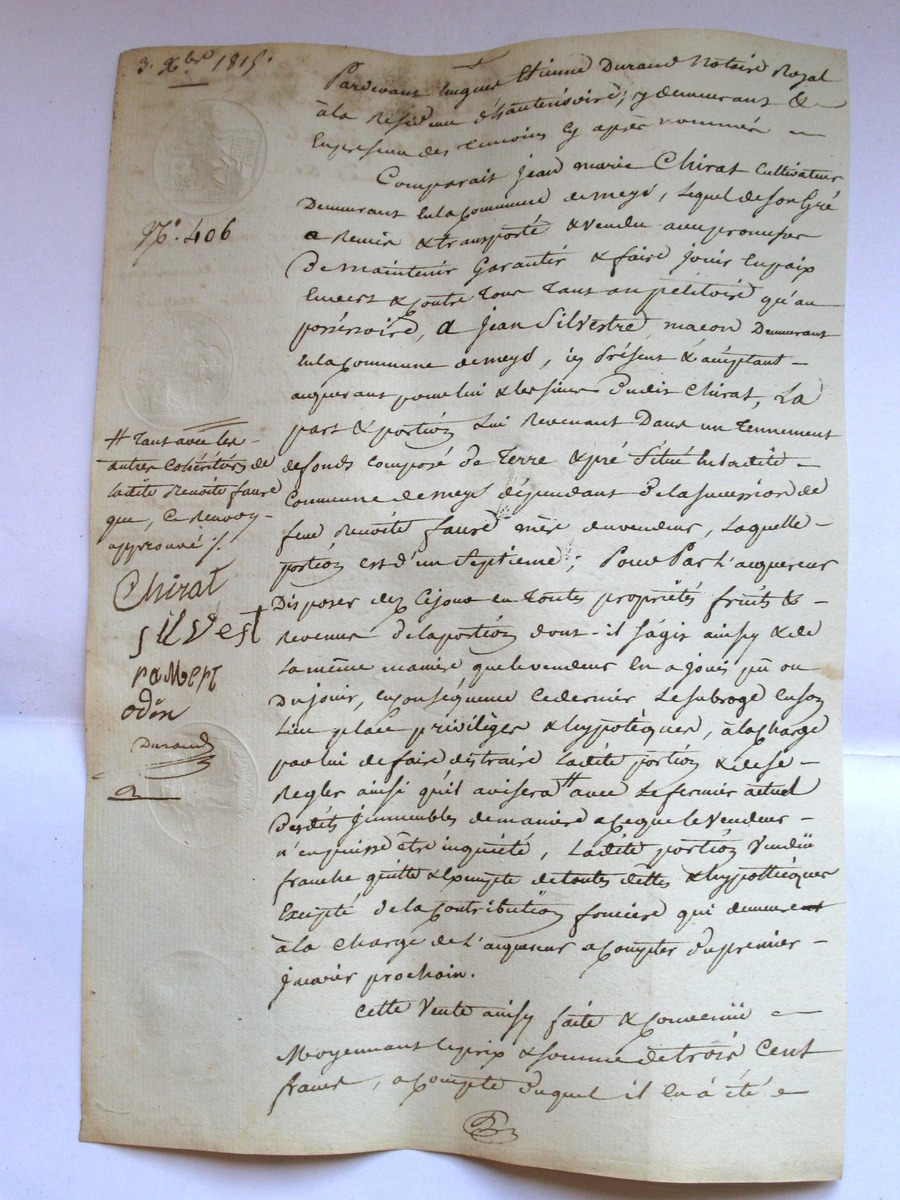 3. Xbre 1815.
Pardevant hugues Etienne Durand Notaire Royal
à la Residence d'hauterivoire, y demeurant &
En presence des temoins cy après nommés
Comparait jean marie Chirat Cultivateur
Demeurant En la Commune de meys, lequel de son Gré
a Remis & transporté & vendu avec promesse
De maintenir Garantir & faire jouir En paix
Envers & Contre Tous Tant au pétitoire qu'au
possessoire, a jean Silvestre maçon Demeurant
En la Commune de meys, icy Présent & acceptant
acquerant pour lui & les siens Dudit Chirat, La
part & portion Lui Revenant Dans un Tennement
de fonds composé de Terre & pré Situé En ladite
Commune de meys dépendant de la succession de
feue Benoite faure mère du vendeur, Laquelle
portion est d'un Septieme; Pour Par L'acquereur
Disposer dez Cejour en Toutes propriétés fruits &
Revenus de la portion dont il s'agit ainsy & de
La même maniere que le vendeur En a joui pu ou
Du jouir, En conséquence Ce dernier Le subroge En son
Lieu place priviléges & hypotèques, à la Charge
par lui de faire distraire Ladite portion & de se
Regler ainsi qu'il avisera # avec Le fermier actuel
Desdits jmmeubles de maniere a ce que le Vendeur
n'en puisse être inquiété, Ladite portion Vendüe
franche quitte & Exempte de toutes dettes & hypothèques
Excepté de la Contribution fonciere qui demeure
à la Charge de L'acquereur a Compter du premier
janvier prochain.
Cette Vente ainsy faite & Convenüe
Moyennant le prix & somme de trois Cent
francs, a Compte duquel il En a été
N°. 406
# Tant avec les
autres Cohéritiers de
ladite Benoite faure
que, Ce Renvoy
approuvé ./.
Chirat
silvest
rambert
odin
Durand